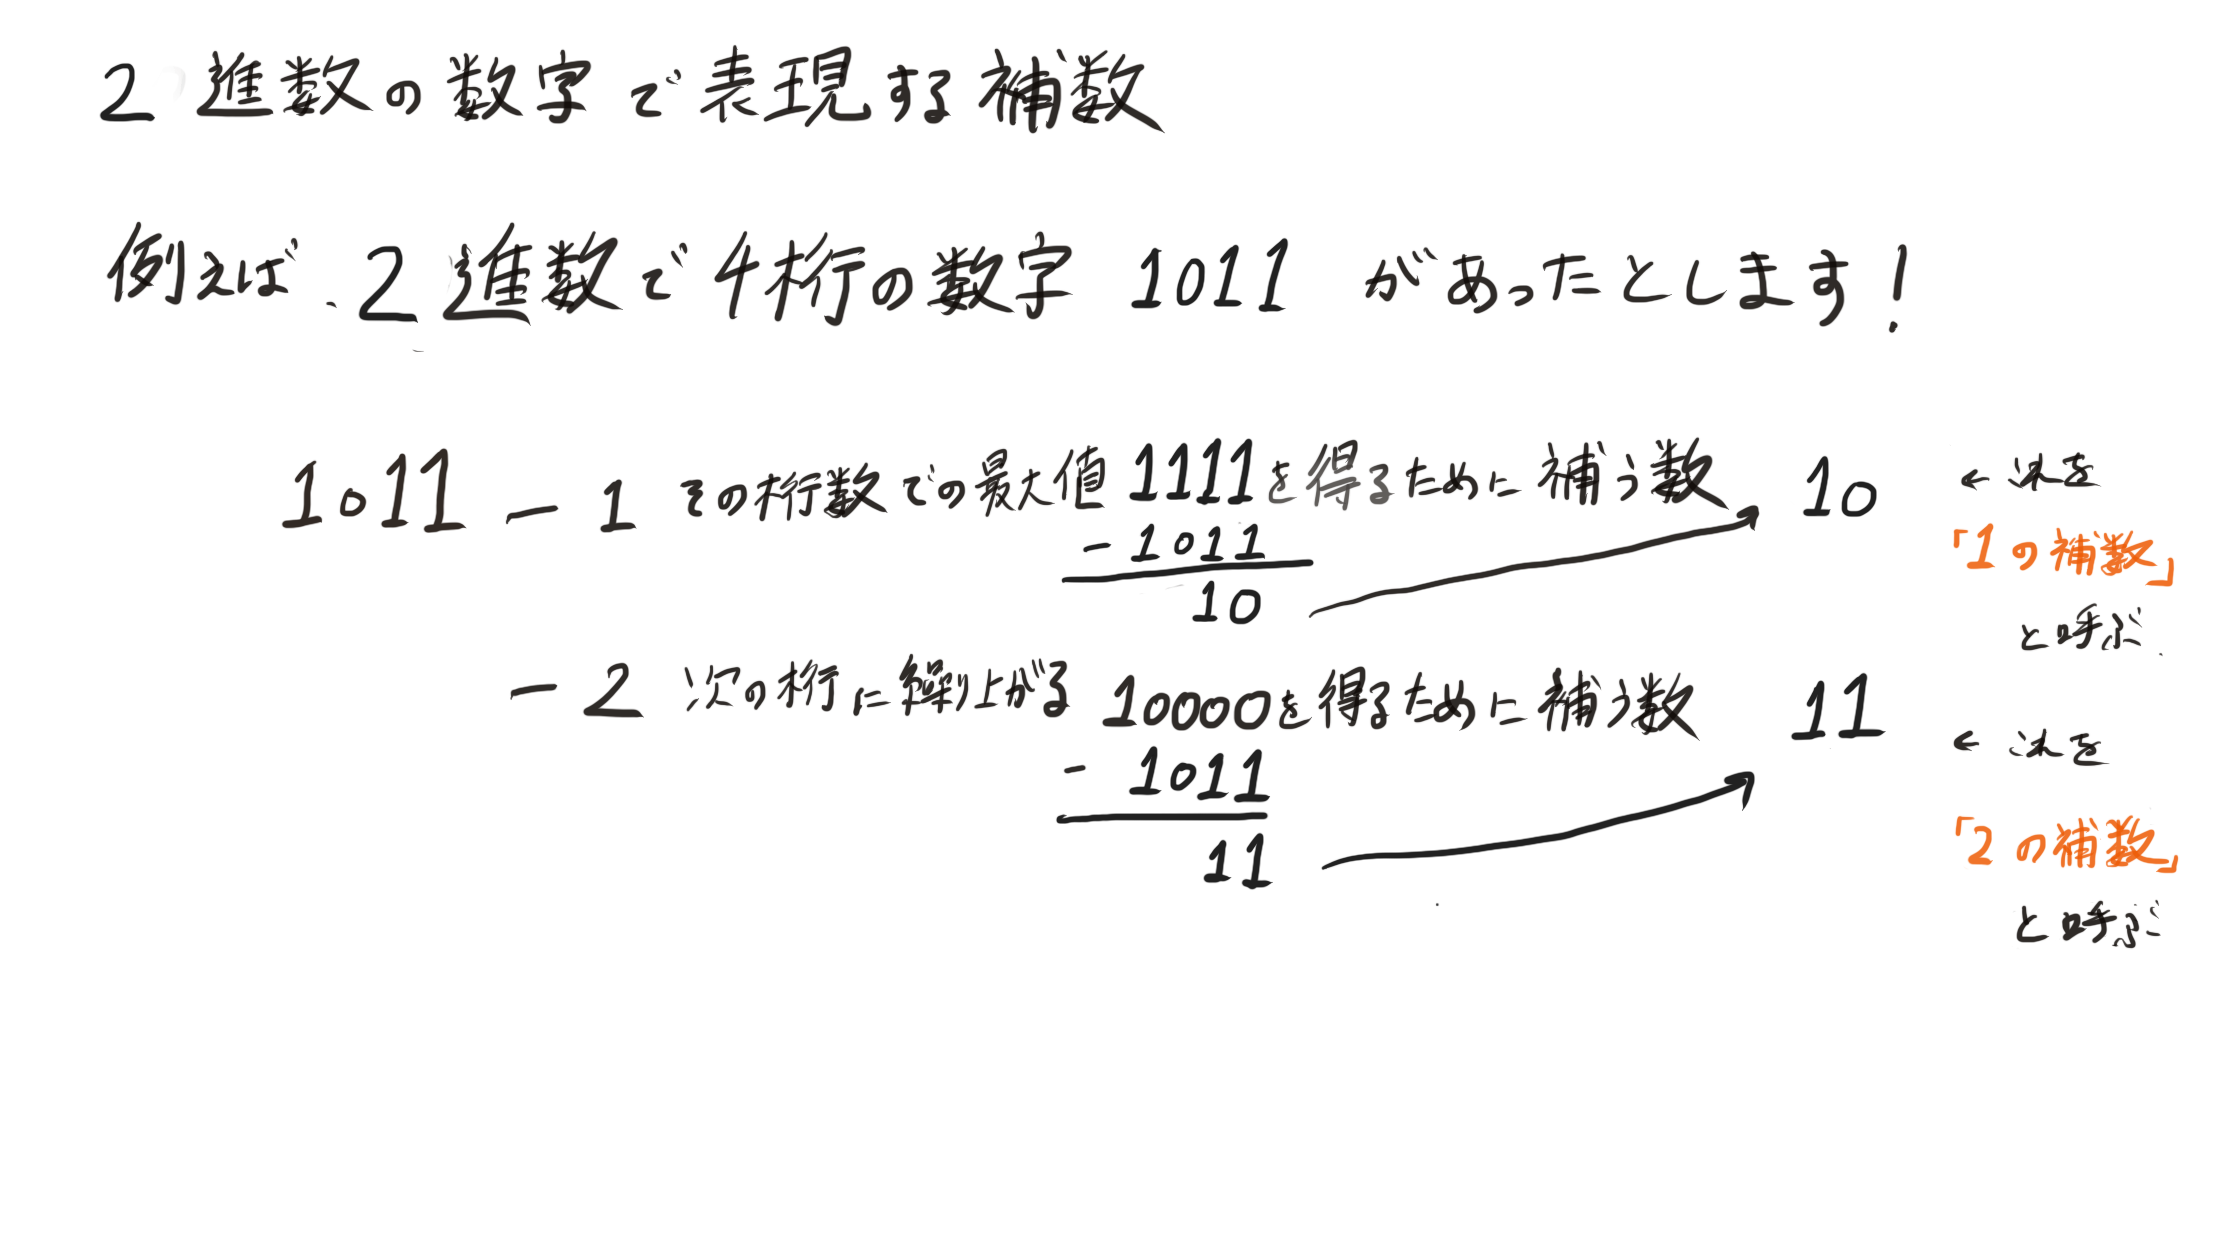 2進数の数字で表現する補数
例えば、2進数で4桁の数字 1011 があったとします!
1011 - 1 その桁数での最大値 1111を得るために補う数 10 ← これを
- 1011
「1の補数」
10
と呼ぶ.
- 2 次の桁に繰り上がる 10000を得るために補う数 11
← これを
- 1011
「2の補数」
11
と呼ぶ